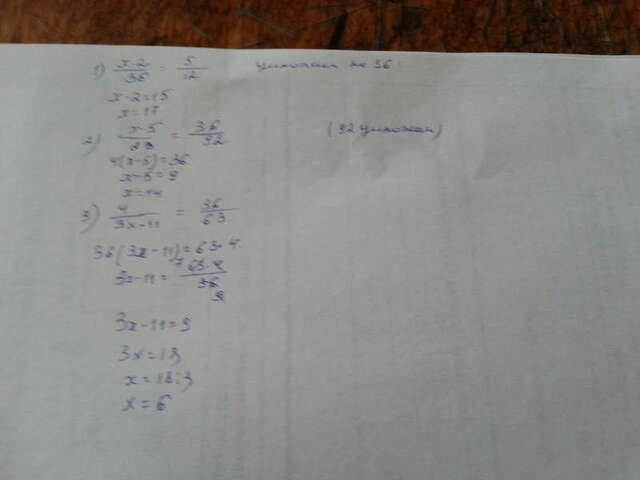 1) x-2/36 = 5/12 умножаем на 36
x-2=15
x=17
2) x-5/23 = 36/92 (92 умножаем)
4(x-5)=36
x-5=9
x=14
3) 4/3x-11 = 36/63
36(3x-11)=63·4
3x-11= 63·4/36
9
3x-11=9
3x=18
x=18:3
x=6